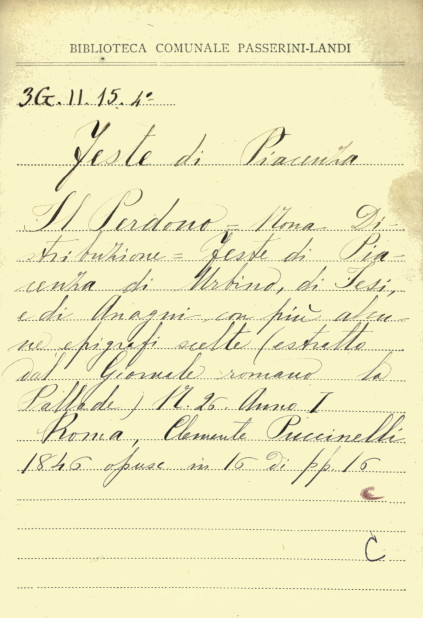 BIBLIOTECA COMUNALE PASSERINI-LANDI
3G. 11. 15. 4º
Feste di Piacenza
Il Perdono = Nona Di-
stribuzione = Feste di Pia-
cenza di Urbino, di Jesi,
e di Anagni con più alcu-
ne epigrafi scelte (estratto
dal Giornale romano la
Pallade) N. 26. Anno I
Roma, Clemente Puccinelli
1846 opusc in 16 di pp. 16
C
C